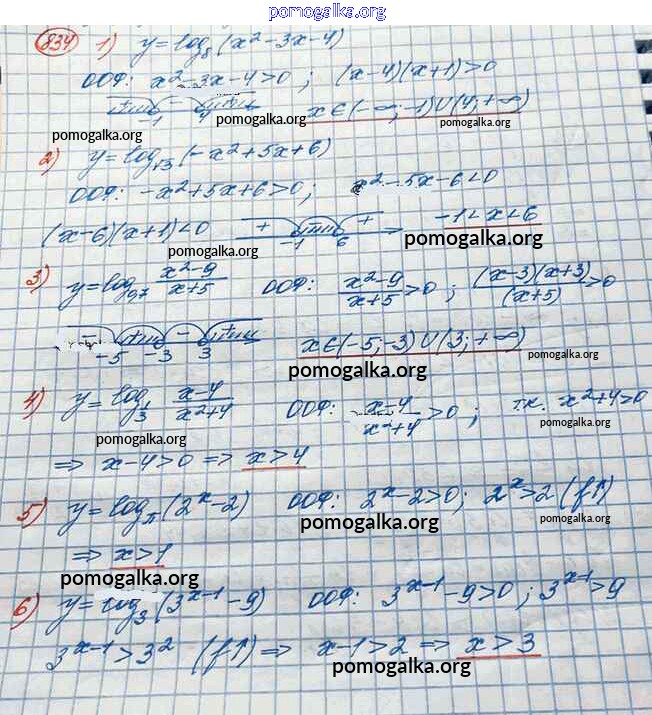 pomogalka.org
834 1) y = log₈(x²-3x-4)
ООФ: x²-3x-4>0 ; (x-4)(x+1)>0
+ - + -1 4 x∈(-∞;-1)∪(4;+∞)
pomogalka.org pomogalka.org pomogalka.org
2) y = log (-x²+5x+6)
ООФ: -x²+5x+6>0; x²-5x-6<0
(x-6)(x+1)<0 + - + -1 6 -1<x<6
pomogalka.org pomogalka.org
3) y = log₀,₇ (x²-9)/(x+5) ООФ: (x²-9)/(x+5)>0 ; (x-3)(x+3)/(x+5)>0
- + - + -5 -3 3 x∈(-5;-3)∪(3;+∞)
pomogalka.org
pomogalka.org
4) y = log_(1/3) (x-4)/(x²+4) ООФ: (x-4)/(x²+4)>0 ; т.к. x²+4>0
pomogalka.org pomogalka.org
⇒ x-4>0 ⇒ x>4
pomogalka.org
5) y = log_π(2ˣ-2) ООФ: 2ˣ-2>0; 2ˣ>2 (f↑)
pomogalka.org pomogalka.org
⇒ x>1
pomogalka.org
6) y = log₃(3ˣ⁻¹-9) ООФ: 3ˣ⁻¹-9>0 ; 3ˣ⁻¹>9
3ˣ⁻¹>3² (f↑) ⇒ x-1>2 ⇒ x>3
pomogalka.org